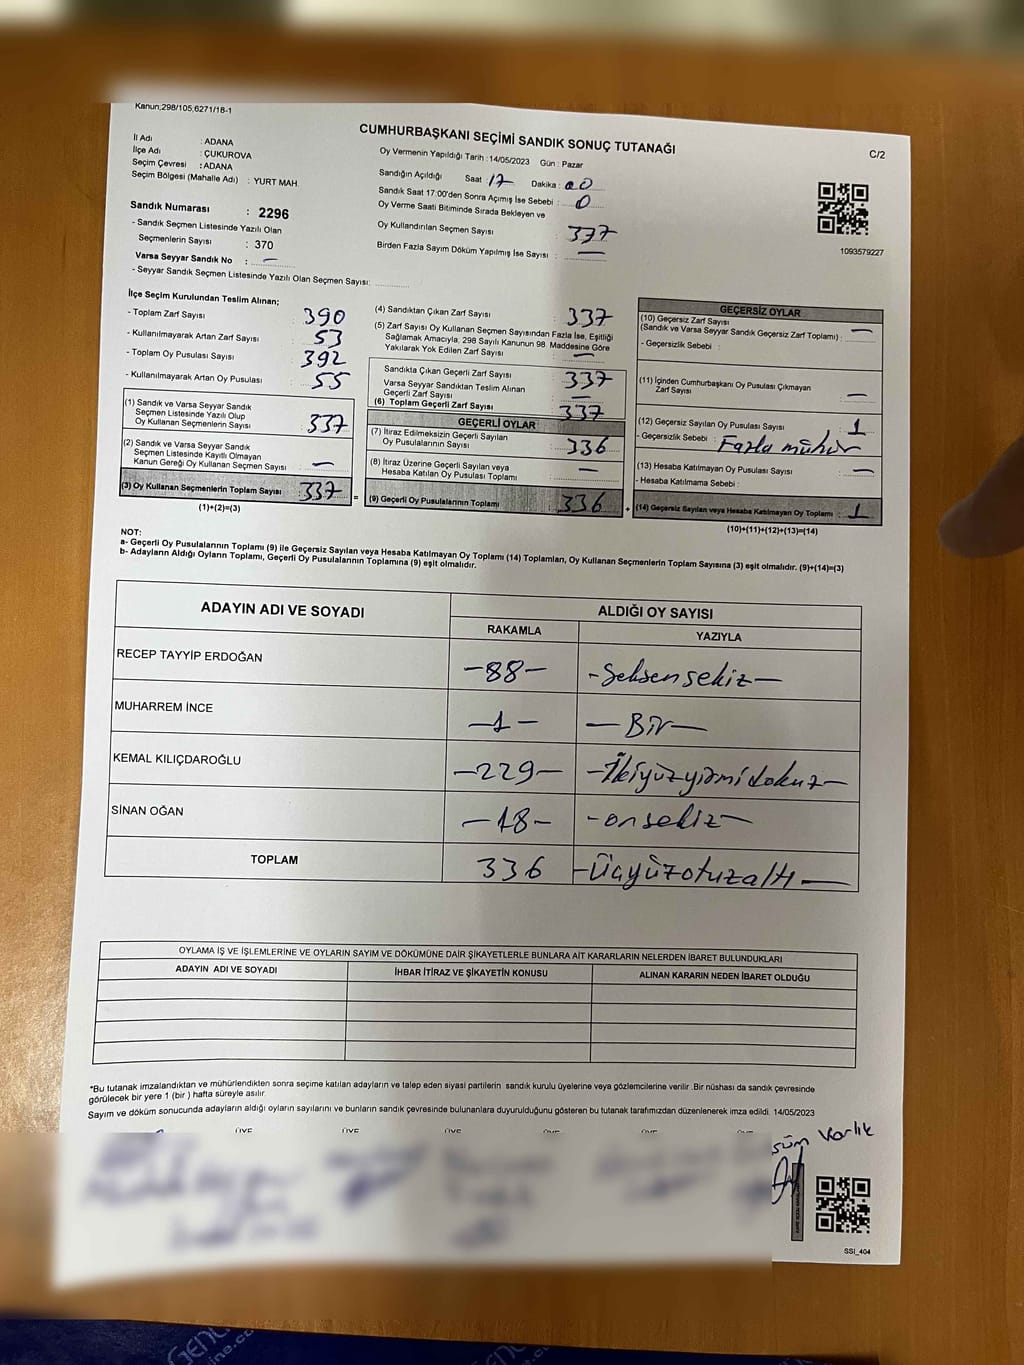 Kanun;298/105;6271/18-1
CUMHURBAŞKANI SEÇİMİ SANDIK SONUÇ TUTANAĞI
C/2
İl Adı : ADANA
İlçe Adı : ÇUKUROVA
Seçim Çevresi : ADANA
Seçim Bölgesi (Mahalle Adı) : YURT MAH.
Oy Vermenin Yapıldığı Tarih : 14/05/2023 Gün : Pazar
Sandığın Açıldığı Saat : 17 Dakika : 00
Sandık Saat 17:00'den Sonra Açımış İse Sebebi : 0
Oy Verme Saati Bitiminde Sırada Bekleyen ve
Oy Kullandırılan Seçmen Sayısı : 337
Birden Fazla Sayım Döküm Yapılmış İse Sayısı : —
1093579227
Sandık Numarası : 2296
- Sandık Seçmen Listesinde Yazılı Olan
Seçmenlerin Sayısı : 370
Varsa Seyyar Sandık No : —
- Seyyar Sandık Seçmen Listesinde Yazılı Olan Seçmen Sayısı:
İlçe Seçim Kurulundan Teslim Alınan;
- Toplam Zarf Sayısı : 390
- Kullanılmayarak Artan Zarf Sayısı : 53
- Toplam Oy Pusulası Sayısı : 392
- Kullanılmayarak Artan Oy Pusulası : 55
(1) Sandık ve Varsa Seyyar Sandık
Seçmen Listesinde Yazılı Olup
Oy Kullanan Seçmenlerin Sayısı : 337
(2) Sandık ve Varsa Seyyar Sandık
Seçmen Listesinde Kayıtlı Olmayan
Kanun Gereği Oy Kullanan Seçmen Sayısı : —
(3) Oy Kullanan Seçmenlerin Toplam Sayısı : 337
(1)+(2)=(3)
=
(4) Sandıktan Çıkan Zarf Sayısı : 337
(5) Zarf Sayısı Oy Kullanan Seçmen Sayısından Fazla İse, Eşitliği
Sağlamak Amacıyla, 298 Sayılı Kanunun 98. Maddesine Göre
Yakılarak Yok Edilen Zarf Sayısı : —
Sandıkta Çıkan Geçerli Zarf Sayısı : 337
Varsa Seyyar Sandıktan Teslim Alınan
Geçerli Zarf Sayısı : —
(6) Toplam Geçerli Zarf Sayısı : 337
GEÇERLİ OYLAR
(7) İtiraz Edilmeksizin Geçerli Sayılan
Oy Pusulalarının Sayısı : 336
(8) İtiraz Üzerine Geçerli Sayılan veya
Hesaba Katılan Oy Pusulası Toplamı : —
(9) Geçerli Oy Pusulalarının Toplamı : 336
+
GEÇERSİZ OYLAR
(10) Geçersiz Zarf Sayısı
(Sandık ve Varsa Seyyar Sandık Geçersiz Zarf Toplamı) : —
- Geçersizlik Sebebi :
(11) İçinden Cumhurbaşkanı Oy Pusulası Çıkmayan
Zarf Sayısı : —
(12) Geçersiz Sayılan Oy Pusulası Sayısı : 1
- Geçersizlik Sebebi : Fazla mühür
(13) Hesaba Katılmayan Oy Pusulası Sayısı : —
- Hesaba Katılmama Sebebi :
(14) Geçersiz Sayılan veya Hesaba Katılmayan Oy Toplamı : 1
(10)+(11)+(12)+(13)=(14)
NOT:
a- Geçerli Oy Pusulalarının Toplamı (9) ile Geçersiz Sayılan veya Hesaba Katılmayan Oy Toplamı (14) Toplamları, Oy Kullanan Seçmenlerin Toplam Sayısına (3) eşit olmalıdır. (9)+(14)=(3)
b- Adayların Aldığı Oyların Toplamı, Geçerli Oy Pusulalarının Toplamına (9) eşit olmalıdır.
ADAYIN ADI VE SOYADI
ALDIĞI OY SAYISI
RAKAMLA YAZIYLA
RECEP TAYYİP ERDOĞAN -88- -Seksensekiz-
MUHARREM İNCE -1- -Bir-
KEMAL KILIÇDAROĞLU -229- -İkiyüzyirmidokuz-
SİNAN OĞAN -18- -onsekiz-
TOPLAM 336 -Üçyüzotuzaltı-
OYLAMA İŞ VE İŞLEMLERİNE VE OYLARIN SAYIM VE DÖKÜMÜNE DAİR ŞİKAYETLERLE BUNLARA AİT KARARLARIN NELERDEN İBARET BULUNDUKLARI
ADAYIN ADI VE SOYADI İHBAR İTİRAZ VE ŞİKAYETİN KONUSU ALINAN KARARIN NEDEN İBARET OLDUĞU
*Bu tutanak imzalandıktan ve mühürlendikten sonra seçime katılan adayların ve talep eden siyasi partilerin sandık kurulu üyelerine veya gözlemcilerine verilir .Bir nüshası da sandık çevresinde
görülecek bir yere 1 (bir ) hafta süreyle asılır.
Sayım ve döküm sonucunda adayların aldığı oyların sayılarını ve bunların sandık çevresinde bulunanlara duyurulduğunu gösteren bu tutanak tarafımızdan düzenlenerek imza edildi. 14/05/2023
ÜYE ÜYE ÜYE ÜYE ÜYE
Varlık
SSI_404